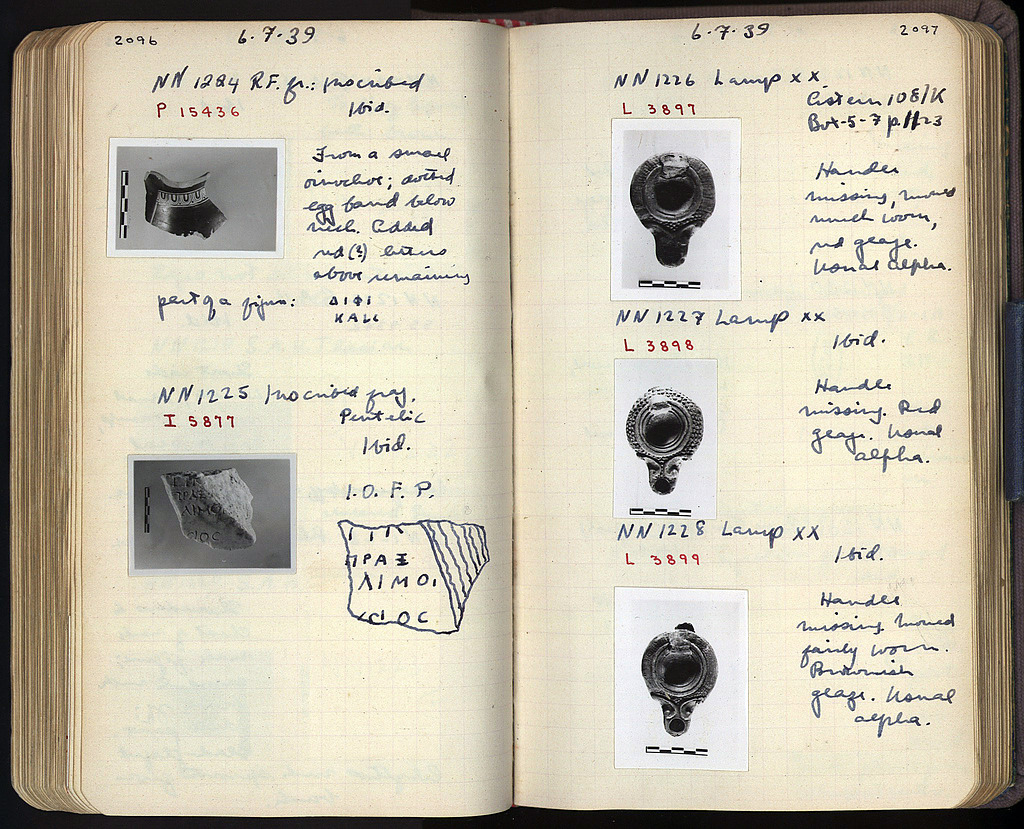 2096
6·7·39
NN 1224 R.F. fr.: Inscribed
P 15436
Ibid.
From a small
oinochoe; dotted
egg band below
neck. Added
red (?) letters
above remaining
part of a figure:
ΔΙΦΙ
ΚΑΛΙ
NN 1225 Inscribed frag.
I 5877
Pentelic
Ibid.
I.O.F.P.
ΠΡΑΞ
ΛΙΜΟΙ
ΟC
2097
6·7·39
NN 1226 Lamp XX
L 3897
Cistern 108/K
Box-5-7 p. 1123
Handle
missing, mould
much worn,
red glaze.
Usual alpha.
NN 1227 Lamp XX
L 3898
Ibid.
Handle
missing. Red
glaze. Usual
alpha.
NN 1228 Lamp XX
L 3899
Ibid.
Handle
missing mould
fairly worn.
Brownish
glaze. Usual
alpha.